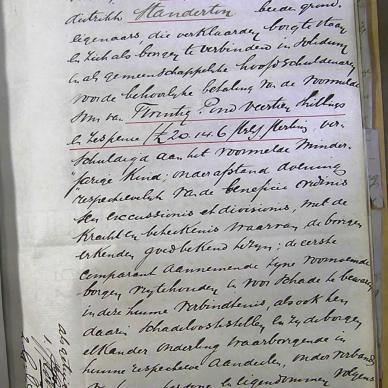 distrikt Standerton beide grond-
eigenaars die verklaarden borg te staan
en zich als borgen te verbinden in solidum
en als gemeenschappelijke hoofdschuldenaren
voor de behoorlijke betaling van de voormelde
som van Twintig Pond veertien shillings
en zespence (£20.14.6 Stg) Sterling ver-
schuldigd aan het voormelde minder-
jarige kind; onder afstand doening
respectievelijk van de beneficie ordinis
seu excussionis et divisionis, met de
kracht en beteekenis waarvan de borgen
erkenden goed bekend te zijn; de eerste
comparant aannemende zyne voornoemde
borgen vrij te houden en voor schade te bewaren
in deze hunne verbindtenis, alsook hen
daarin schadeloos te stellen en zyde borgen
elkander onderling waarborgende in
hunne respectieve aandeelen, onder verband
persoon en eigendommen volgens